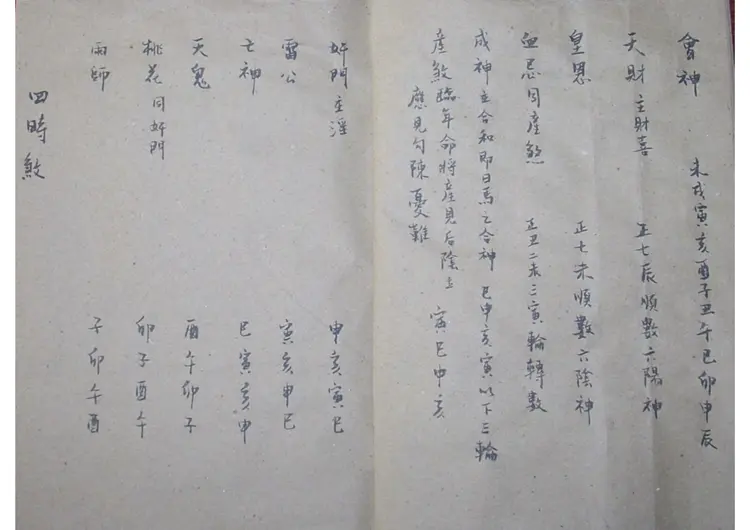 會神 未戌寅亥酉子丑午巳卯申辰
天財主財喜 正七辰順數六陽神
皇恩 正七未順數六陰神
血忌同產煞 正丑二未三寅輪轉數
成神主合和即日馬之合神 巳申亥寅以下三輪
產煞臨年命將產見后陰上 寅巳申亥
應見勾陳憂難
奸門主淫 申亥寅巳
雷公 寅亥申巳
亡神 巳寅亥申
天鬼 酉午卯子
桃花同奸門 卯子酉午
雨師 子卯午酉
四時煞